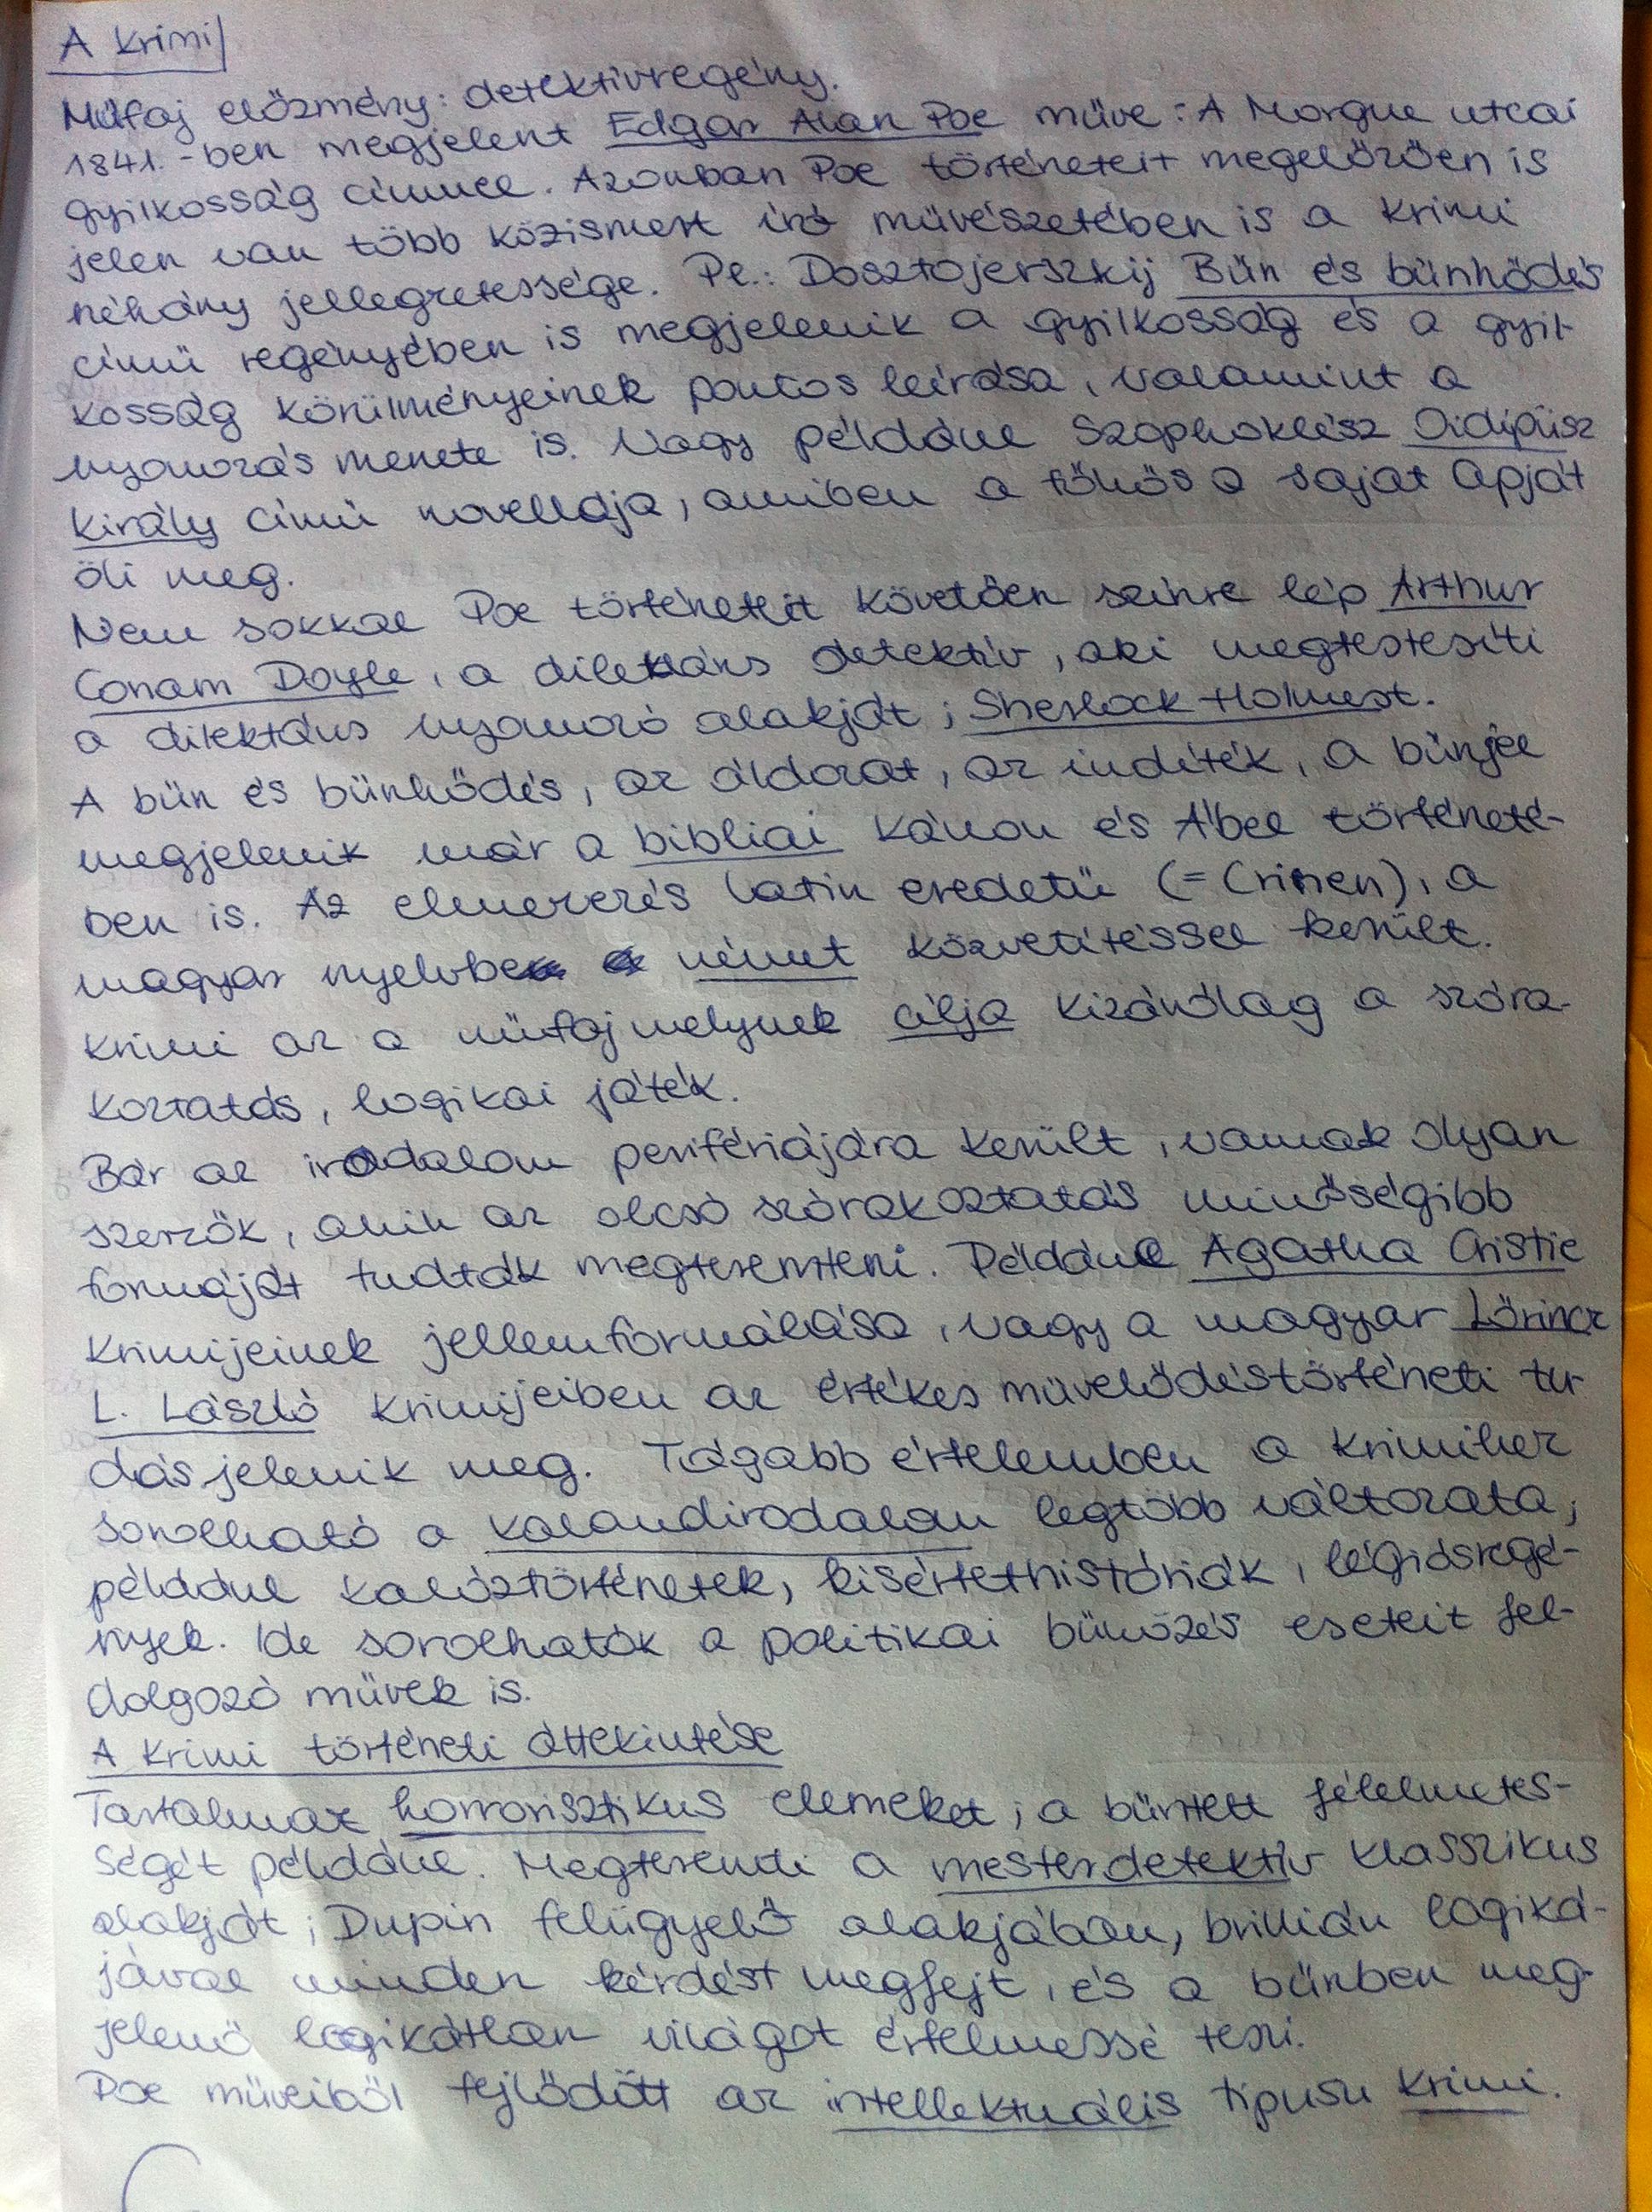 A krimi
Műfaj előzmény: detektívregény.
1841.-ben megjelent Edgar Alan Poe műve: A Morgue utcai
gyilkosság címmel. Azonban Poe történeteit megelőzően is
jelen van több közismert író művészetében is a krimi
néhány jellegzetessége. Pl.: Dosztojevszkij Bűn és bűnhődés
című regényében is megjelenik a gyilkosság és a gyil-
kosság körülményeinek pontos leírása, valamint a
nyomozás menete is. Vagy például Szophoklész Oidipusz
király című novellája, amiben a főhős a saját apját
öli meg.
Nem sokkal Poe történeteit követően színre lép Arthur
Conam Doyle, a dilektáns detektív, aki megtestesíti
a dilektáns nyomozó alakját; Sherlock Holmest.
A bűn és bűnhődés, az áldozat, az indíték, a bűnjel
megjelenik már a bibliai Káhon és Ábel történeté-
ben is. Az elnevezés latin eredetű (= Crimen), a
magyar nyelvbe német közvetítéssel került.
krimi az a műfaj melynek célja kizárólag a szóra-
koztatás, logikai játék.
Bár az irodalom perifériájára került, vannak olyan
szerzők, akik az olcsó szórakoztatás minőségibb
formáját tudták megteremteni. Például Agatha Cristie
krimijeinek jellemformálása, vagy a magyar Lőrincz
L. László krimijeiben az értékes művelődéstörténeti tu-
dás jelenik meg. Tágabb értelemben a krimihez
sorolható a kalandirodalom legtöbb változata,
például kalóztörténetek, kisértethistóriák, légiósregé-
nyek. Ide sorolhatók a politikai bűnözés eseteit fel-
dolgozó művek is.
A krimi történeti áttekintése
Tartalmaz horrorisztikus elemeket; a bűntett félelmetes-
ségét például. Megteremti a mesterdetektív klasszikus
alakját; Dupin felügyelő alakjában, brilliáns logiká-
jával minden kérdést megfejt, és a bűnben meg-
jelenő logikátlan világot értelmessé teszi.
Poe műveiből fejlődött az intellektuális típusú krimi.